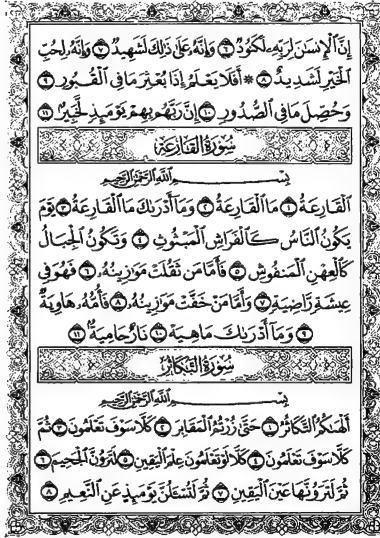 إِنَّ الْإِنسَانَ لِرَبِّهِ لَكَنُودٌ ٦ وَإِنَّهُ عَلَىٰ ذَٰلِكَ لَشَهِيدٌ ٧ وَإِنَّهُ لِحُبِّ
الْخَيْرِ لَشَدِيدٌ ٨ ۞ أَفَلَا يَعْلَمُ إِذَا بُعْثِرَ مَا فِي الْقُبُورِ ٩
وَحُصِّلَ مَا فِي الصُّدُورِ ١٠ إِنَّ رَبَّهُم بِهِمْ يَوْمَئِذٍ لَّخَبِيرٌ ١١
سُورَةُ القَارِعَةِ
بِسْمِ اللَّهِ الرَّحْمَٰنِ الرَّحِيمِ
الْقَارِعَةُ ١ مَا الْقَارِعَةُ ٢ وَمَا أَدْرَاكَ مَا الْقَارِعَةُ ٣ يَوْمَ
يَكُونُ النَّاسُ كَالْفَرَاشِ الْمَبْثُوثِ ٤ وَتَكُونُ الْجِبَالُ
كَالْعِهْنِ الْمَنفُوشِ ٥ فَأَمَّا مَن ثَقُلَتْ مَوَازِينُهُ ٦ فَهُوَ فِي
عِيشَةٍ رَّاضِيَةٍ ٧ وَأَمَّا مَنْ خَفَّتْ مَوَازِينُهُ ٨ فَأُمُّهُ هَاوِيَةٌ
٩ وَمَا أَدْرَاكَ مَا هِيَهْ ١٠ نَارٌ حَامِيَةٌ ١١
سُورَةُ التَّكَاثُرِ
بِسْمِ اللَّهِ الرَّحْمَٰنِ الرَّحِيمِ
أَلْهَاكُمُ التَّكَاثُرُ ١ حَتَّىٰ زُرْتُمُ الْمَقَابِرَ ٢ كَلَّا سَوْفَ تَعْلَمُونَ ٣ ثُمَّ
كَلَّا سَوْفَ تَعْلَمُونَ ٤ كَلَّا لَوْ تَعْلَمُونَ عِلْمَ الْيَقِينِ ٥ لَتَرَوُنَّ الْجَحِيمَ ٦
ثُمَّ لَتَرَوُنَّهَا عَيْنَ الْيَقِينِ ٧ ثُمَّ لَتُسْأَلُنَّ يَوْمَئِذٍ عَنِ النَّعِيمِ ٨